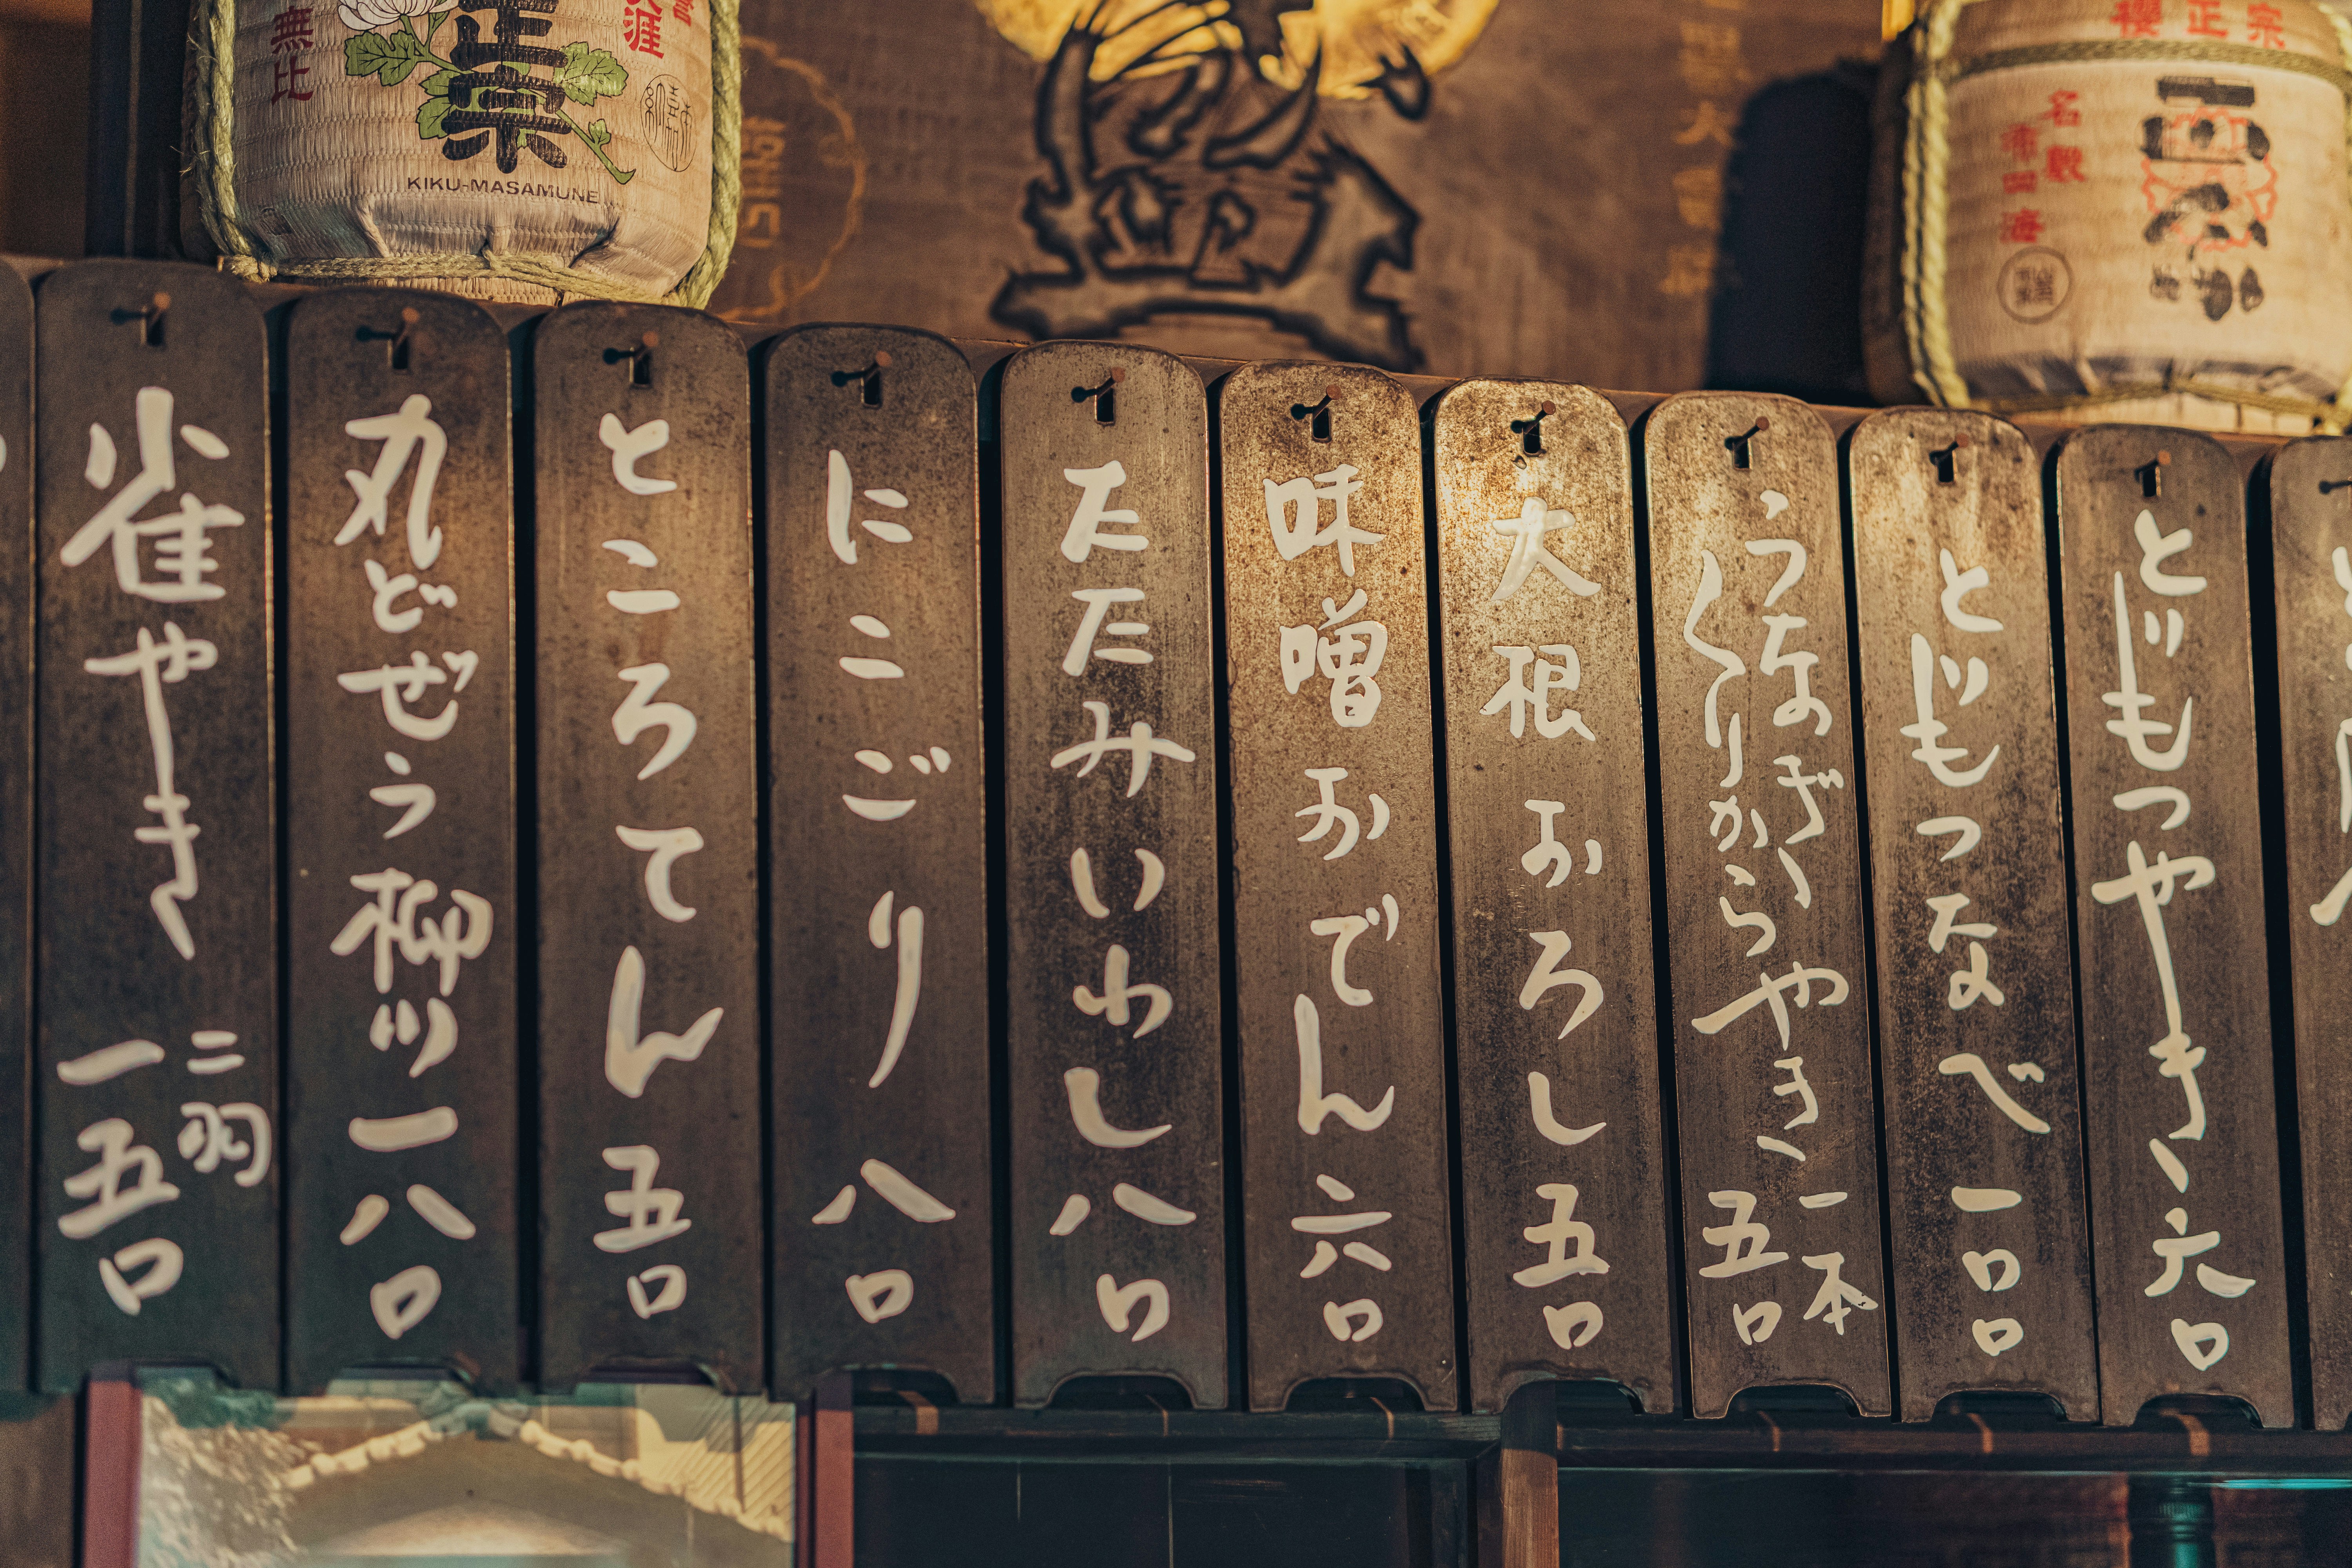 とじもつやき 六〇
とじもつなべ 一〇〇
うなぎ
くりからやき 一本
五〇
大根おろし 五〇
味噌おでん 六〇
たたみいわし 八〇
にこごり 八〇
ところてん 五〇
丸どぜう柳川 一八〇
雀やき 二羽
一五〇
正宗
無比
KIKU-MASAMUNE
櫻正宗